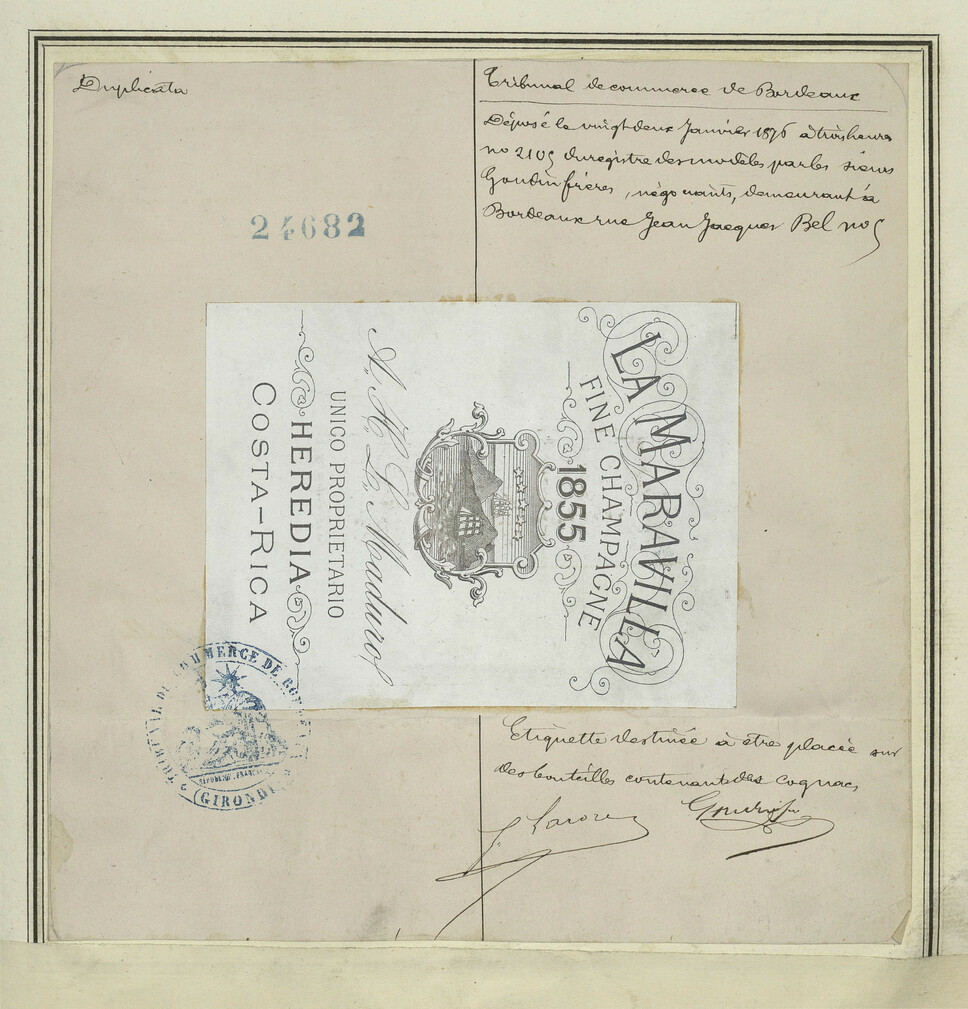 Duplicata
24682
Tribunal de commerce de Bordeaux
Déposé le vingt deux Janvier 1876 à trois heures
no 2105 du registre des modèles par les sieurs
Goudin frères, négociants, demeurant à
Bordeaux rue Jean Jacques Bel no 5
LA MARAVILLA
FINE CHAMPAGNE
1855
A. H. L. Maduro
UNICO PROPRIETARIO
HEREDIA
COSTA-RICA
TRIBUNAL DE COMMERCE DE BORDEAUX
RÉPUB. FRANÇ.
(GIRONDE)
Etiquette destinée à être placée sur
des bouteilles contenant des cognacs